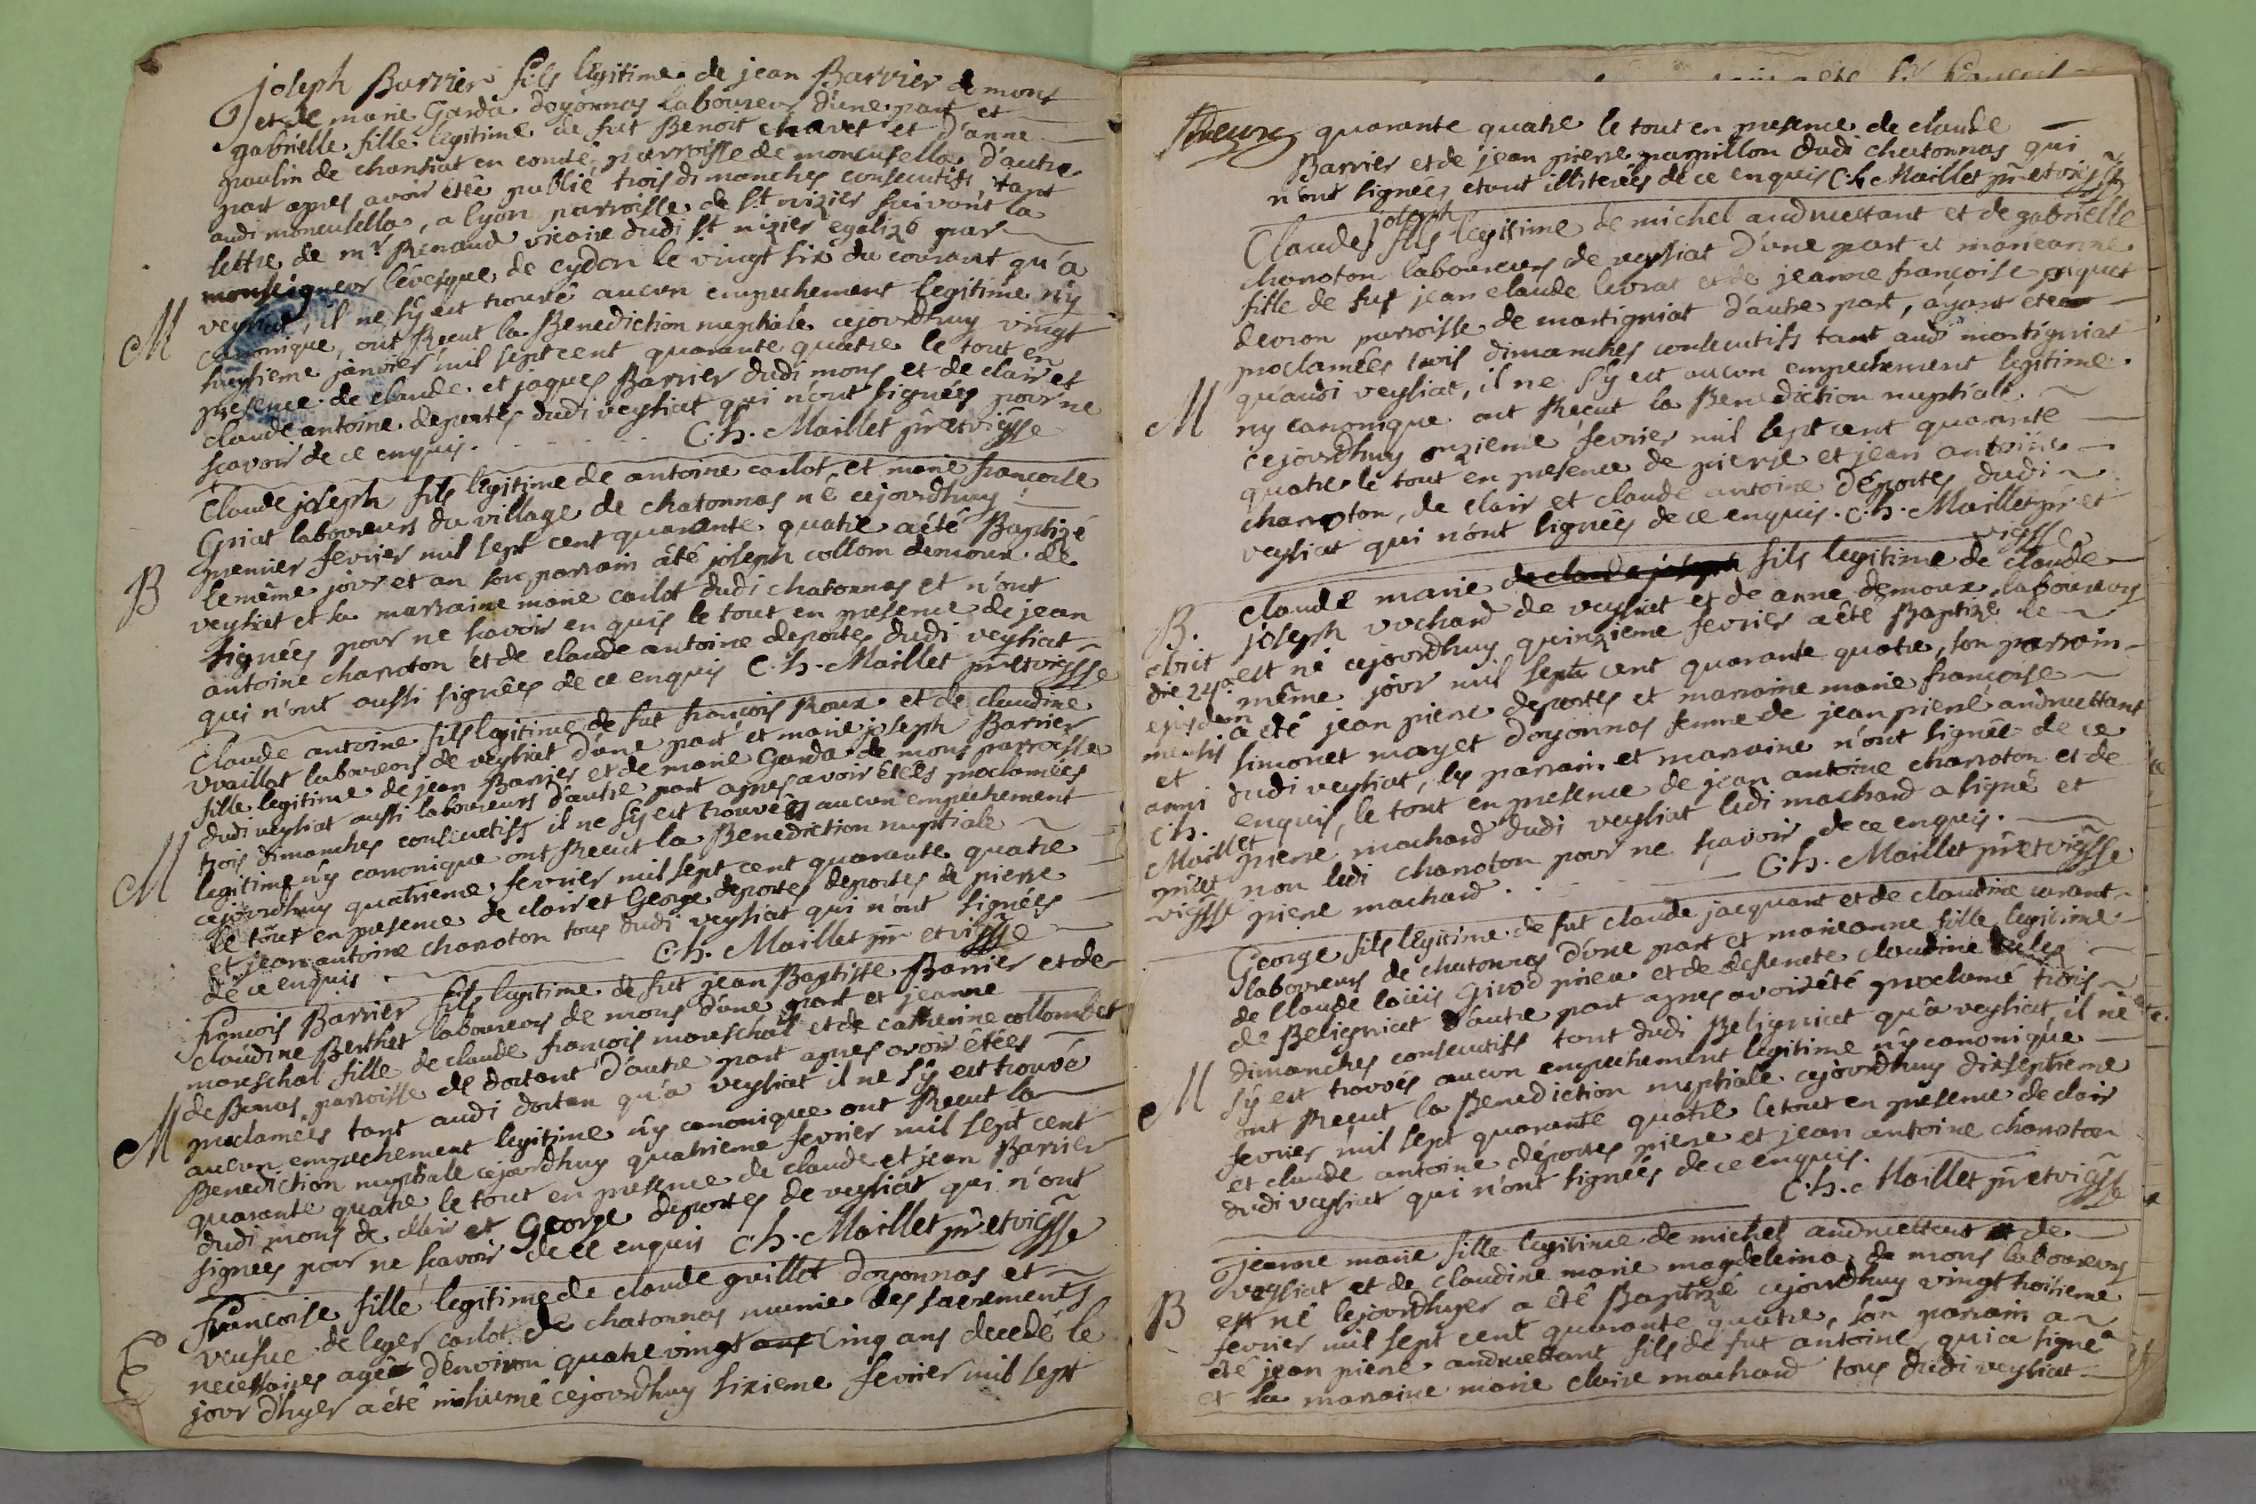 joseph Barrier fils legitime de jean Barrier de mons
et de marie Garda doyonnas laboureur d'une part et
gabrielle fille legitime de fut Benoit chavet et d'anne
paulin de chansiat en comté parroisse de moncusella d'autre
part apres avoir étée publié trois dimanches consecutifs, tant
audi moncusella, a lyon parroisse de st nizier suivant la
lettre de mr Renaud vicaire dudi st nizier par
monseigneur l'evesque de cydon le vingt six du courant qu'a
veysiat, il ne s'y est trouvé aucun empechement legitime n'y
canonique, ont Receut la Benediction nuptiale cejourdhuy vingt
huytieme janvier mil sept cent quarante quatre le tout en
presence de claude et jaques Barrier dudi mons et de clair et
claude antoine deportes dudi veysiat qui n'ont signées pour ne
scavoir de ce enquis. C. h. Maillet ptr et vic sse
M
Claude joseph fils legitime de antoine carlot et marie francoise
Griat laboureurs du village de chatonnas né cejourdhuy
premier fevrier mil sept cent quarante quatre a été Baptizé
le même jour et an son parrain a été joseph collom demoux de
veysiat et la marraine marie carlot dudi chatonnas et n'ont
signées pour ne scavoir en quis le tout en presence de jean
antoine charoton et de claude antoine deportes dudi veysiat
qui n'ont aussi signées de ce enquis C. h. Maillet ptr et vic sse
B
Claude antoine fils legitime de fut françois Roux et de claudine
vvaillat laboureurs de veysiat d'une part et marie joseph Barrier
fille legitime de jean Barrier et de marie Garda de mons parroisse
dudi veysiat aussi laboureurs d'autre part apres avoir étées proclamées
trois dimanches consecutifs il ne s'y est trouvé aucun empechement
legitime n'y canonique ont Receut la Benediction nuptiale
cejourdhuy quatrieme fevrier mil sept cent quarante quatre
le tout en presence de clair et George deportes deportes de pierre
et jean antoine charoton tous dudi veysiat qui n'ont signées
de ce enquis C. h. Maillet ptr et vic sse
M
François Barrier fils legitime de fut jean Baptiste Barrier et de
claudine Berthet laboureurs de mons d'une part et jeanne
mareschal fille de claude françois mareschal et de catherine collombet
de Bonas parroisse de dortant d'autre part apres avoir étées
proclamées tant audi dortan qu'a veysiat il ne s'y est trouvé
aucun empechement legitime n'y canonique ont Receut la
Benediction nuptiale cejourdhuy quatrieme fevrier mil sept cent
quarante quatre le tout en presence de claude et jean Barrier
dudi mons de clair et George deportes de veysiat qui n'ont
signées pour ne scavoir de ce enquis C. h. Maillet ptr et vic sse
M
Françoise fille legitime de claude guillot doyonnas et
veufue de leger carlot de chatonnas munie des sacrements
necessaires agée d'environ quatre vingt ans cinq ans decedé le
jour d'hyer a été inhumé cejourdhuy sixieme fevrier mil sept
quarante quatre le tout en presence de claude
Barrier et de jean pierre papillon dudi chatonnas qui
n'ont signées etant illiterées de ce enquis C. h. Maillet ptr et vic sse
joseph
Claude fils legitime de michel andruettant et de gabrielle
charoton laboureurs de veysiat d'une part et marieanne
fille de fut jean claude livrat et de jeanne françoise paquet
devron parroisse de martigniat d'autre part, ayant étée
proclamées trois dimanches consecutifs tant audi martigniat
qu'audi veysiat, il ne s'y est aucun empechement legitime
ny canonique ont Receut la Benediction nuptiale
cejourdhuy onzieme fevrier mil sept cent quarante
quatre le tout en presence de pierre et jean antoine
charoton, de clair et claude antoine déportes dudi
veysiat qui n'ont signées de ce enquis. C. h. Maillet ptr et
vic sse
M
claude marie de claude joseph fils legitime de claude
joseph vuchard de veysiat et de anne demoux laboureurs
est né cejourdhuy quinzieme fevrier a été Baptizé le
même jour mil sept cent quarante quatre, son parrain
a été jean pierre deportes et marraine marie françoise
simonet mayet doyonnas femme de jean pierre andruettant
dudi veysiat, les parrain et marraine n'ont signée de ce
enquis, le tout en presence de jean antoine charoton et de
pierre machard dudi veysiat ledi machard a signé et
non ledi charoton pour ne scavoir de ce enquis.
pierre machard. C. h. Maillet ptr et vic sse
B.
obiit
die 24a
ejusdem
mensis
et
anni
C. h.
Maillet
ptr et
vic sse
George fils legitime de fut claude jacquant et de claudine
laboureurs de chatonnas d'une part et marieanne fille legitime
de Claude loüis Girod prieu et de deffuncte claudine
de Beligniat d'autre part apres avoir été proclamé trois
dimanches consecutifs tant dudi Beligniat qu'a veysiat, il ne
s'y est trouvés aucun empechement legitime n'y canonique
ont Receut la Benediction nuptiale cejourdhuy dixseptieme
fevrier mil sept quarante quatre le tout en presence de clair
et claude antoine déportes pierre et jean antoine charoton
dudi veysiat qui n'ont signées de ce enquis.
C. h. Maillet ptr et vic sse
M
jeanne marie fille legitime de michel andruettant de
veysiat et de claudine marie magdeleina de mons laboureurs
est né lejourdhyer a été Baptizé cejourdhuy vingt troisieme
fevrier mil sept cent quarante quatre, son parrain a
été jean pierre andruettant fils de fut antoine qui a signé
et la marraine marie claire machard tous dudi veysiat
B